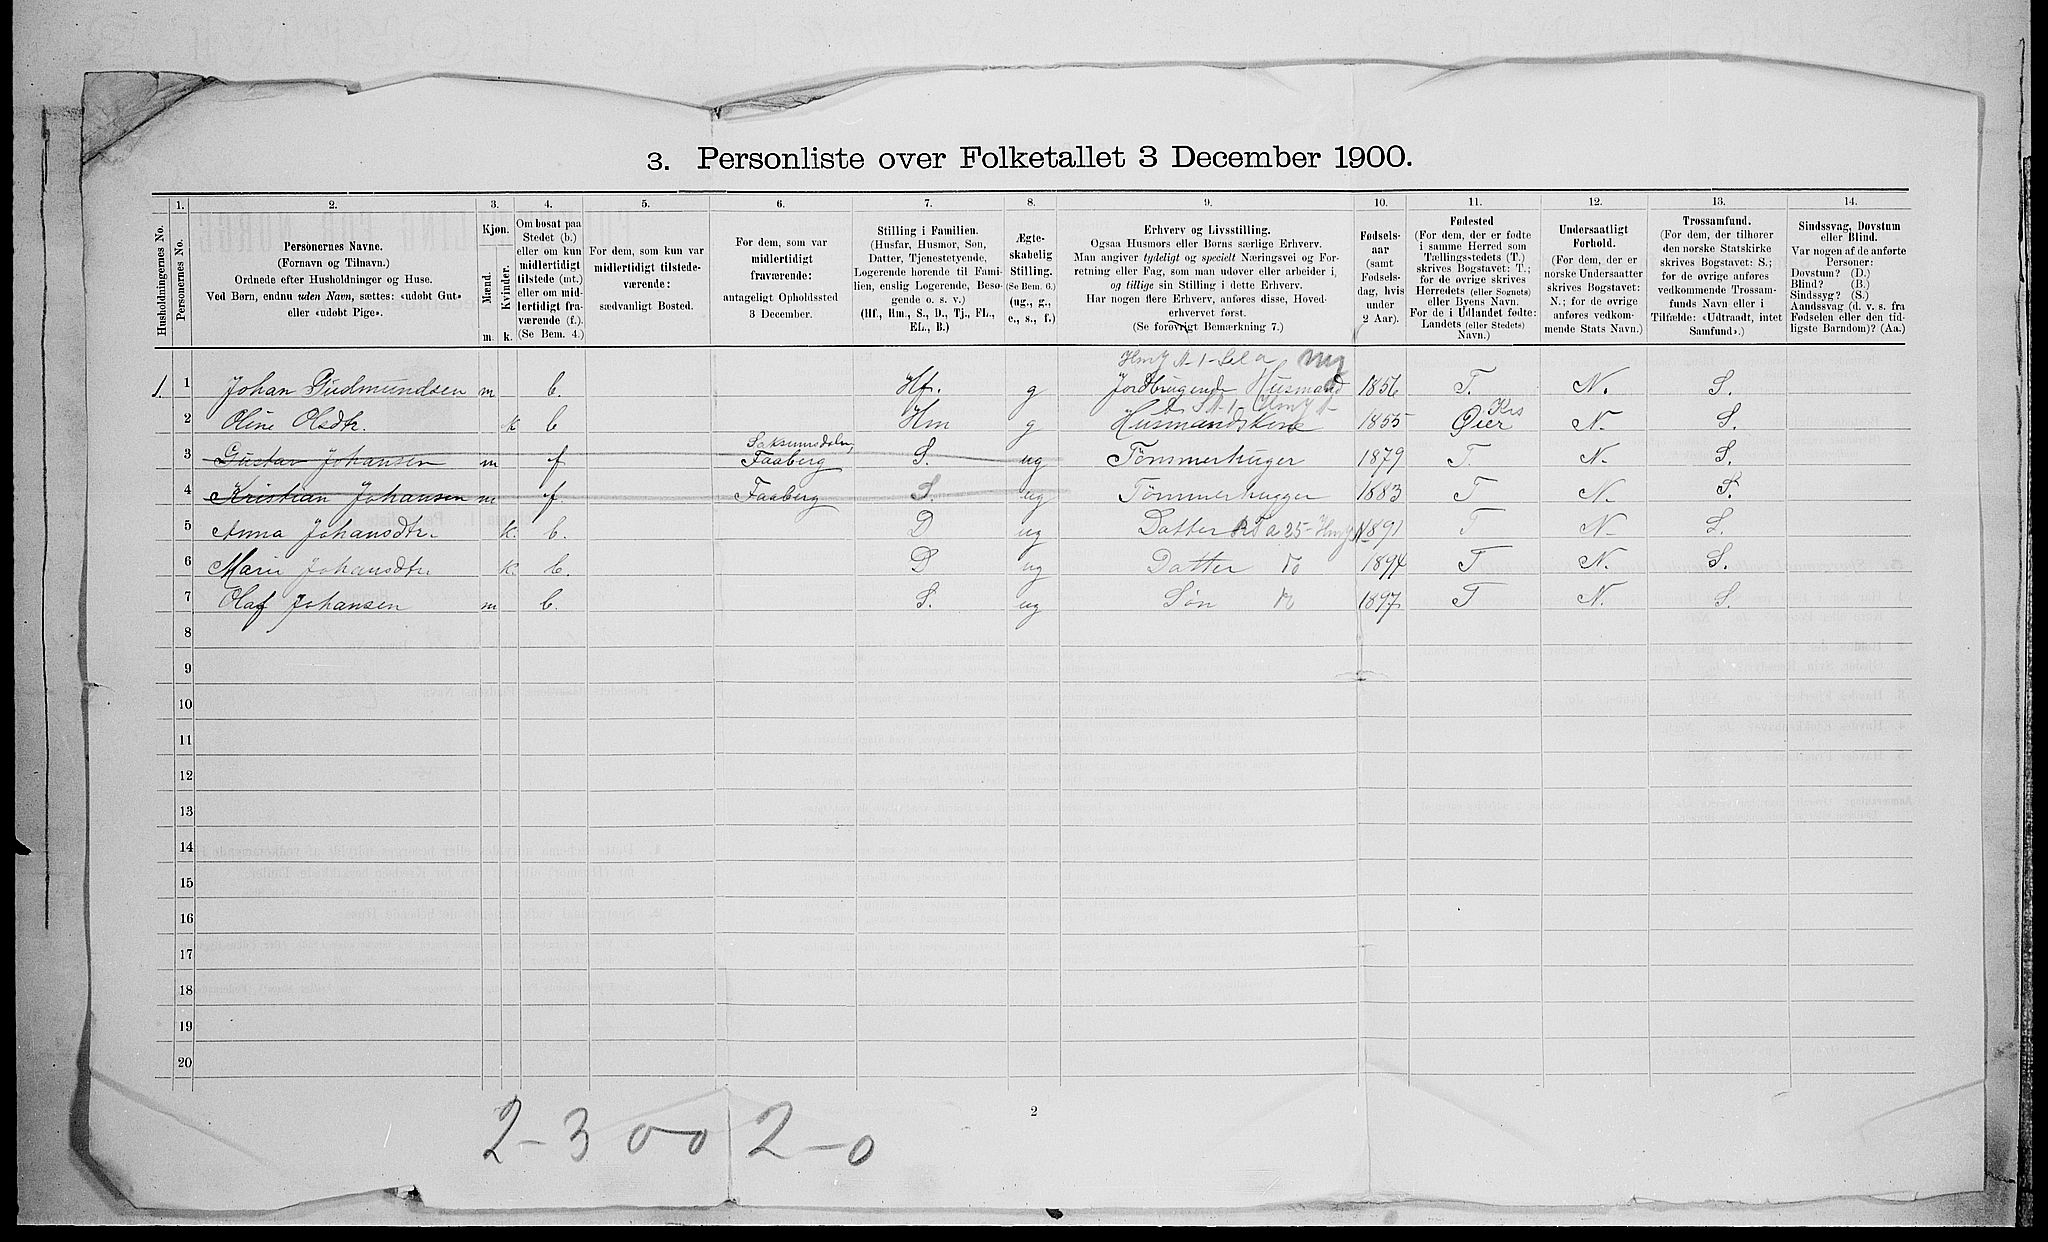 3. Personliste over Folketallet 3 December 1900.
1. 2. 3. 4. 5. 6. 7. 8. 9. 10. 11. 12. 13. 14.
Husholdningernes No.
Personernes No.
Personernes Navne.
(Fornavn og Tilnavn.)
Ordnede efter Husholdninger og Huse.
Ved Børn, endnu uden Navn, sættes: «udøbt Gut»
eller «udøbt Pige».
Kjøn.
Mænd.
Kvinder.
m. k.
Om bosat paa
Stedet (b.)
eller om kun
midlertidigt
tilstede (mt.)
eller om mid-
lertidigt fra-
værende (f.).
(Se Bem. 4.)
For dem, som kun var
midlertidigt tilstede-
værende:
sædvanligt Bosted.
For dem, som var
midlertidigt
fraværende:
antageligt Opholdssted
3 December.
Stilling i Familien.
(Husfar, Husmor, Søn,
Datter, Tjenestetyende,
Logerende hørende til Fami-
lien, enslig Logerende, Besø-
gende o. s. v.)
(Hf., Hm., S., D., Tj., FL.,
EL., B.)
Ægte-
skabelig
Stilling.
(Se Bem. 6.)
(ug., g.,
e., s., f.)
Erhverv og Livsstilling.
Ogsaa Husmors eller Børns særlige Erhverv.
Man angiver tydeligt og specielt Næringsvei og For-
retning eller Fag, som man udøver eller arbeider i,
og tillige sin Stilling i dette Erhverv.
Har nogen flere Erhverv, anføres disse, Hoved-
erhvervet først.
(Se forøvrigt Bemærkning 7.)
Fødsels-
aar
(samt
Fødsels-
dag, hvis
under
2 Aar).
Fødested
(For dem, der er fødte
i samme Herred som
Tællingsstedets (T.)
skrives Bogstavet: T.;
for de øvrige skrives
Herredets (eller Sognets)
eller Byens Navn.
For de i Udlandet fødte:
Landets (eller Stedets)
Navn.)
Undersaatligt
Forhold.
(For dem, der er
norske Undersaatter
skrives Bogstavet:
N.; for de øvrige
anføres vedkom-
mende Stats Navn.)
Trossamfund.
(For dem, der tilhører
den norske Statskirke
skrives Bogstavet: S.;
for de øvrige anføres
vedkommende Trossam-
funds Navn eller i
Tilfælde: «Udtraadt, intet
Samfund».)
Sindssvag, Døvstum
eller Blind.
Var nogen af de anførte
Personer:
Døvstum? (D.)
Blind? (B.)
Sindssyg? (S.)
Aandssvag (d. v. s. fra
Fødselen eller den tid-
ligste Barndom)? (Aa.)
1. 1 Johan Gudmundsen m b. Hf. g Jordbrugende Husmand 1856 T. N. S.
2 Oline Olsdtr. k b Hm g Husmandskone 1855 Øier Krs N. S.
3 Gustav Johansen m f Saksumsdalen, Faaberg S. ug Tømmerhuger 1879 T. N. S.
4 Kristian Johansen m f. Faaberg S. ug Tømmerhugger 1883 T N. S.
5 Anna Johansdtr. k. b. D ug Datter 1891 T N. S.
6 Marie Johansdtr. k. b. D ug Datter do 1894 T N. S.
7 Olaf Johansen m b. S. ug Søn do 1897 T N. S.
8
9
10
11
12
13
14
15
16
17
18
19
20
2
2-3 00 2-0